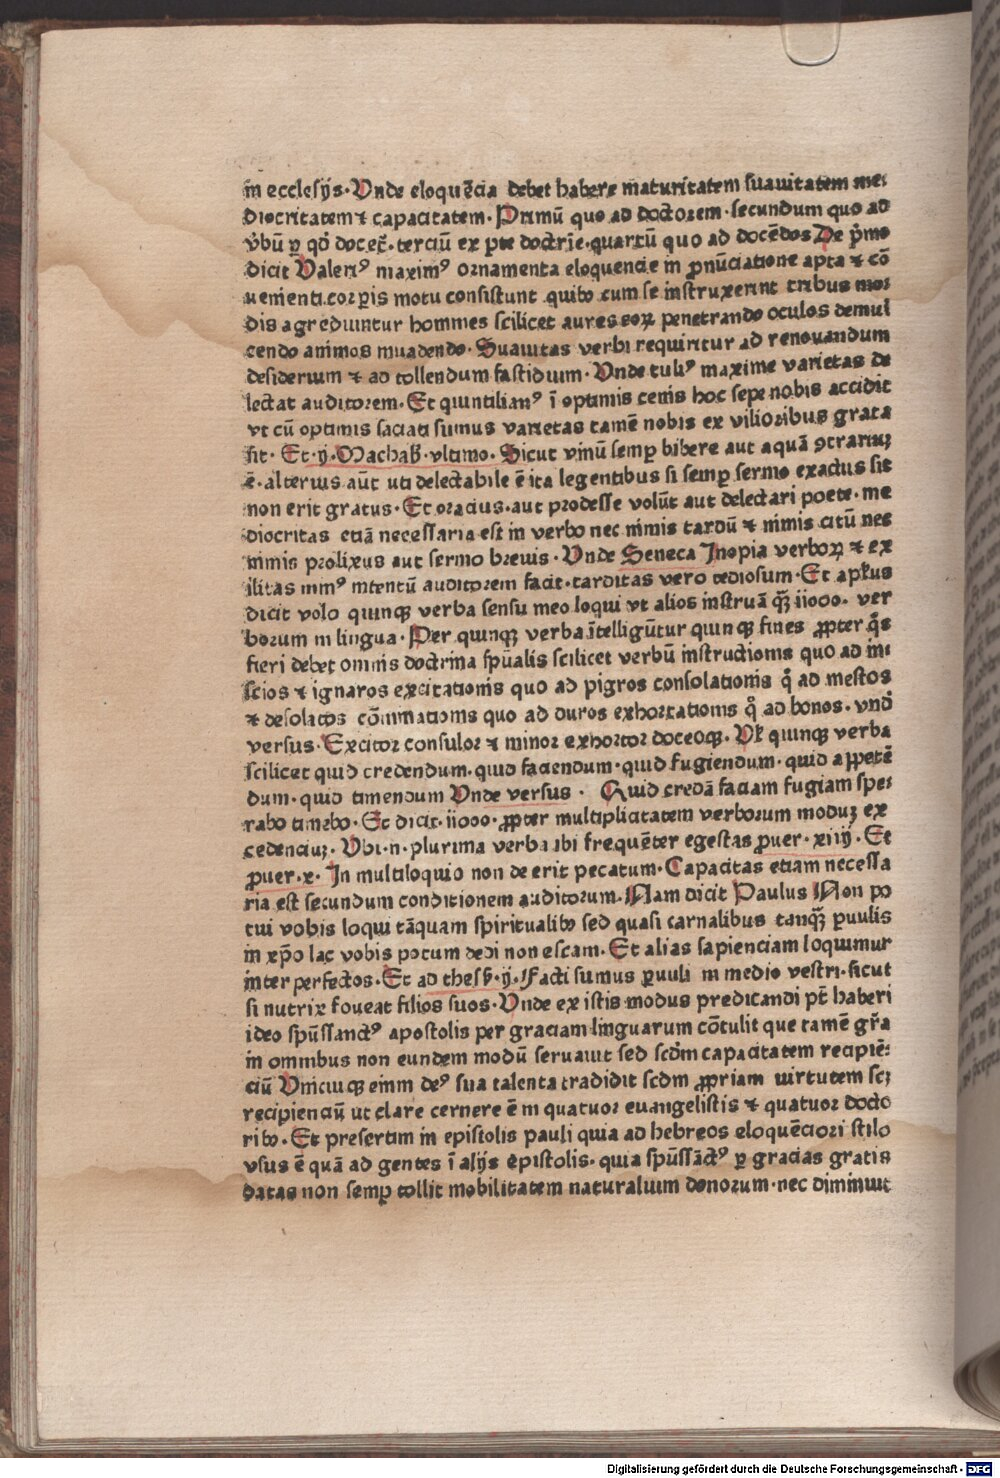 in ecclesijs. Vnde eloquēcia debet habere maturitatem suauitatem me⸗
diocritatem ⁊ capacitatem. Primū quo ad doctorem. secundum quo ad
v̓bū ꝑ qḋ docet᷒. terciū ex ꝑte doctrīe. quartū quo ad docēdos De pͥmo
dicit Valeriꝰ maximꝰ ornamenta eloquencie in ꝓnūciatione apta ⁊ cō
uenienti corꝑis motu consistunt quibꝰ cum se instruxerint tribus mo⸗
dis agrediuntur homines scilicet aures eoꝝ penetrando oculos demul
cendo animos inuadendo. Suauitas verbi requiritur ad renouandum
desiderium ⁊ ad tollendum fastidium. Vnde tuliꝰ maxime varietas de
lectat auditorem. Et quintilianꝰ ī optimis cenis hoc sepe nobis accidit
vt cū optimis saciati sumus varietas tamē nobis ex vilioribus grata
sit. Et .ij. Machab̓. vltimo. Sicut vinū semꝑ bibere aut aquā ꝯtrariuꝫ
ē. alterius aūt uti delectabile ē ita legentibus si semꝑ sermo exactus sit
non erit gratus. Et oracius. aut prodesse volūt aut delectari poete. me
diocritas etiā necessaria est in verbo nec nimis tardū ⁊ nimis citū nec
nimis prolixus aut sermo breuis. Vnde Seneca Inopia verboꝝ ⁊ ex
ilitas minꝰ intentū auditorem facit. tarditas vero tediosum. Et apl̓us
dicit volo quinqꝫ verba sensu meo loqui vt alios instruā qͣꝫ iiooo. ver
borum in lingua. Per quinqꝫ verba ītelligūtur quinqꝫ fines ꝓpter qͦs
fieri debet omnis doctrina spūalis scilicet verbū instructionis quo ad in⸗
scios ⁊ ignaros excitationis quo ad pigros consolationis qͦ ad mestos
⁊ desolatos cōminationis quo ad duros exhortationis qͦ ad bonos. vnd̓
versus. Excitor consulor ⁊ minor exhortor doceoqꝫ. Vl̓ quinqꝫ verba
scilicet quid credendum. quid faciendum. quid fugiendum. quid appetē
dum. quid timendum Vnde versus . Quid credā faciam fugiam spe⸗
rabo timebo. Et dicit. iiooo. ꝓpter multiplicitatem verborum moduꝫ ex
cedenciuꝫ. Vbi .n. plurima verba ibi frequēter egestas ꝓuer. xiiij. Et
ꝓuer. x. In multiloquio non de erit pecatum. Capacitas etiam necessa
ria est secundum conditionem auditorum. Nam dicit Paulus Non po
tui vobis loqui tāquam spiritualibꝰ sed quasi carnalibus tanqͣꝫ ꝑuulis
in xp̄o lac vobis potum dedi non escam. Et alias sapienciam loquimur
inter perfectos. Et ad thess̓. ij. Facti sumus ꝑuuli in medio vestri. sicut
si nutrix foueat filios suos. Vnde ex istis modus predicandi pt̄ haberi
ideo spūssanctꝰ apostolis per graciam linguarum cōtulit que tamē gr̄a
in omnibus non eundem modū seruauit sed scd̄m capacitatem recipiē⸗
ciū Vnicuiqꝫ enim deꝰ sua talenta tradidit scdm ꝓpriam uirtutem scꝫ
recipienciū ut clare cernere ē in quatuor euangelistis ⁊ quatuor docto
ribꝰ. Et presertim in epistolis pauli quia ad hebreos eloquēciori stilo
vsus ē quā ad gentes ī alijs epistolis. quia spūssāctꝰ ꝑ gracias gratis
datas non semꝑ tollit mobilitatem naturalium donorum. nec diminuit
Digitalisierung gefördert durch die Deutsche Forschungsgemeinschaft - DFG